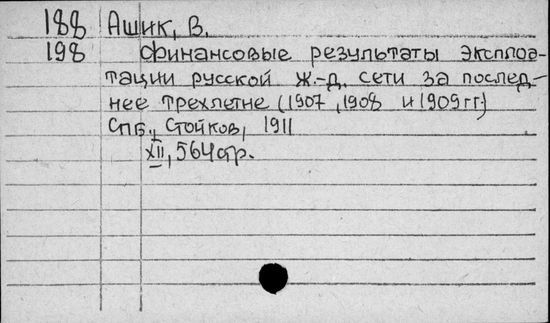 188 Ашик, В.
198 Финансовые результаты эксплоа-
тации русской ж.-д. сети за послед-
нее трехлетие (1907, 1908 и 1909 гг.)
Спб., Стойков, 1911
XII, 564 стр.